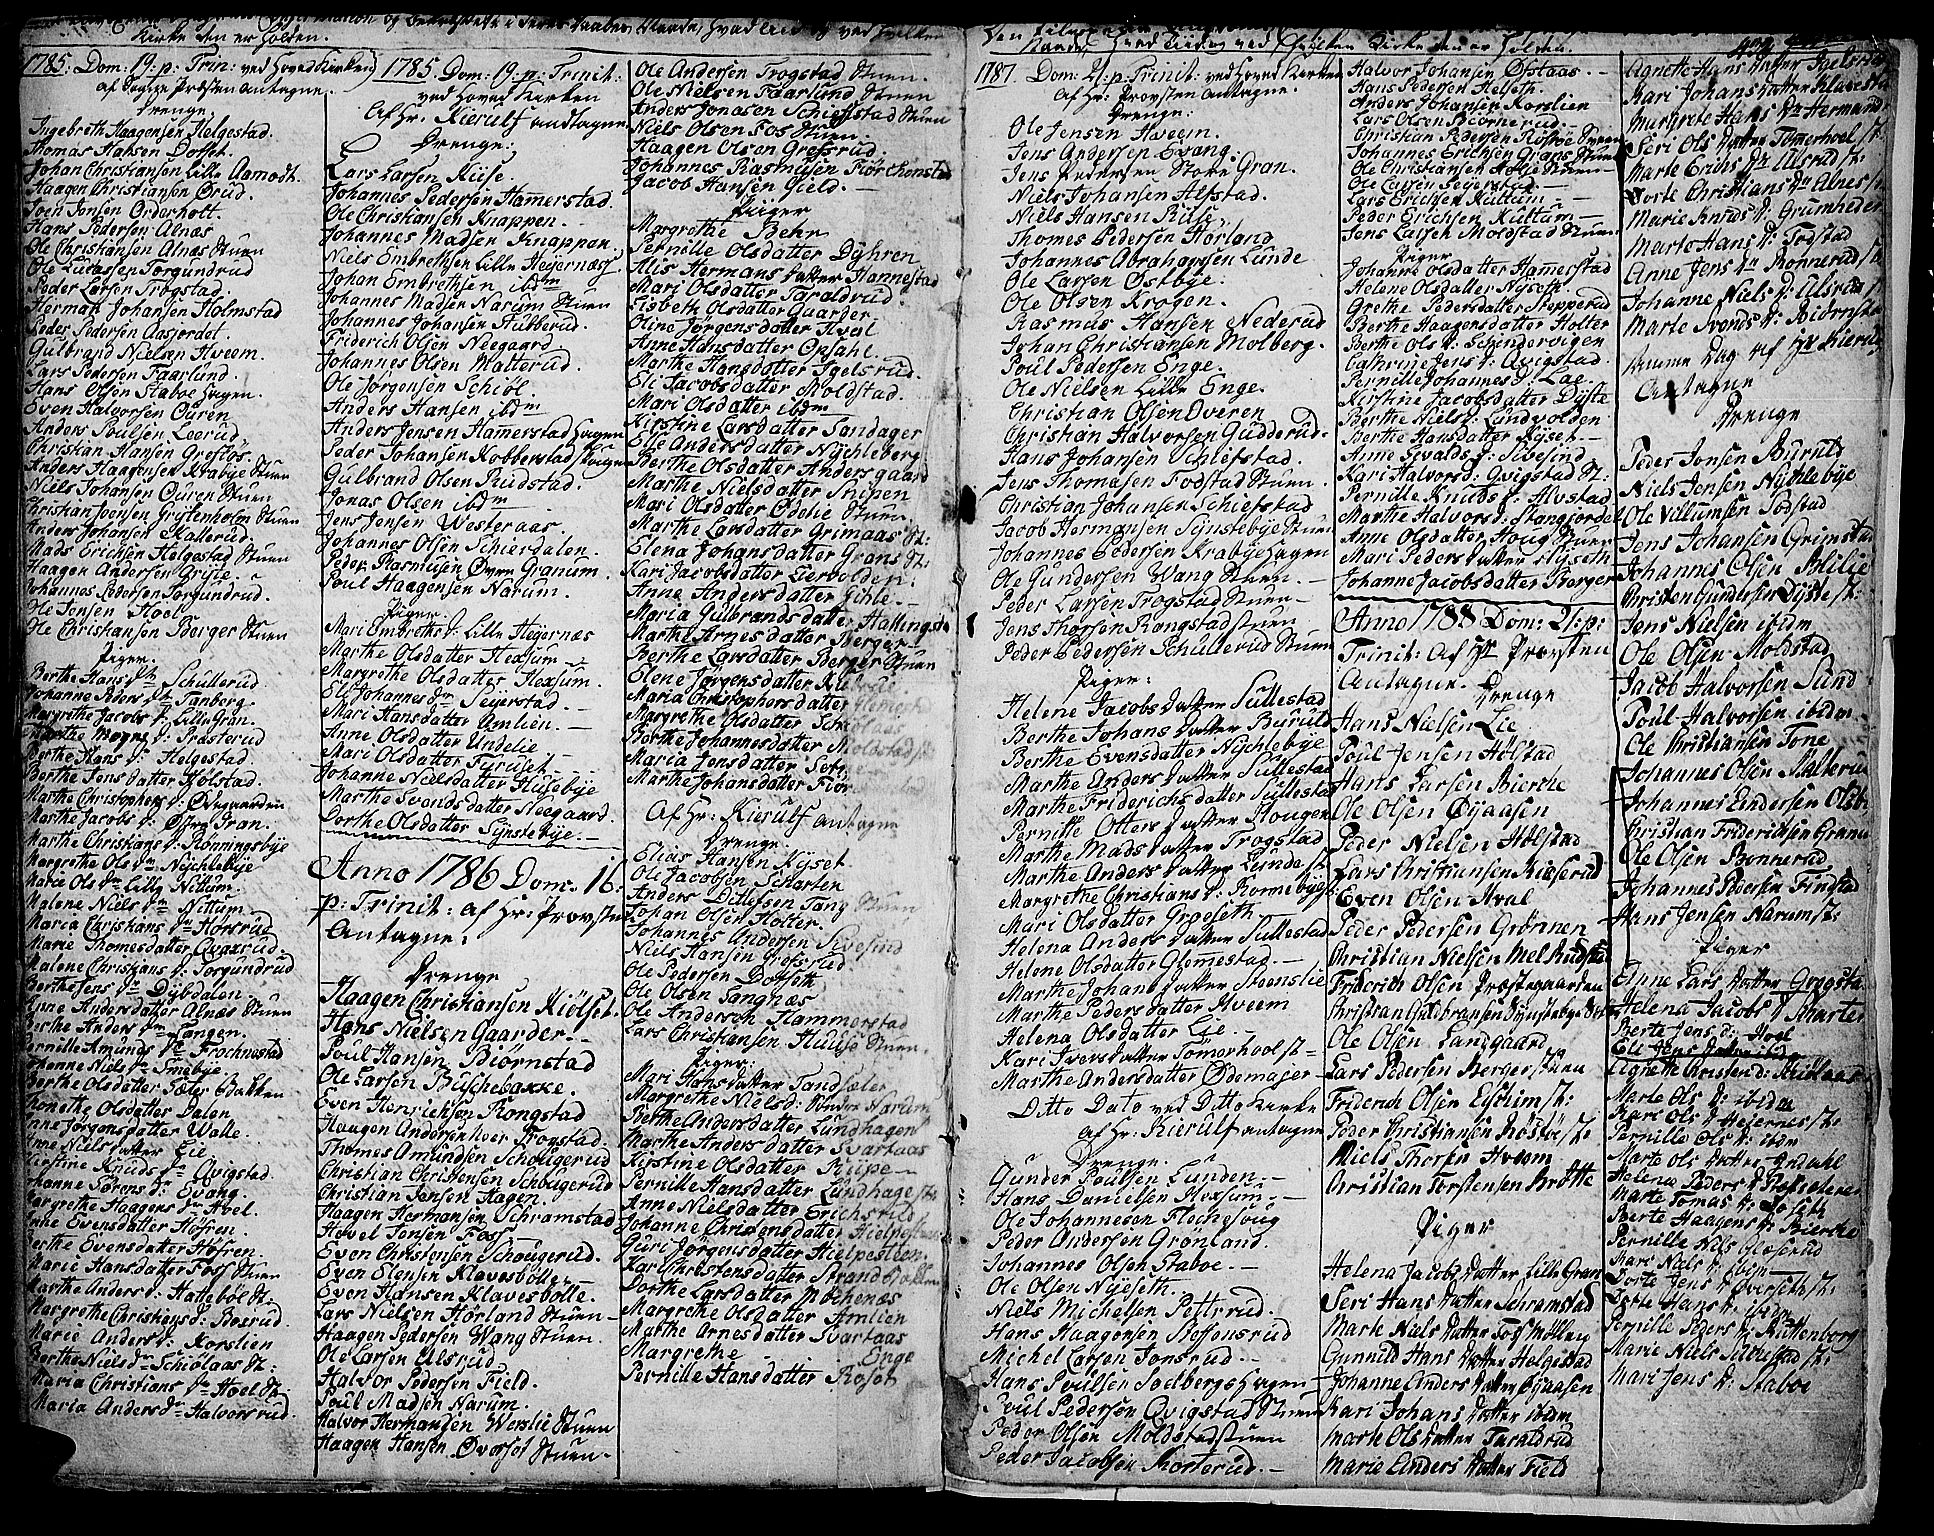 Kirke den er holden.
1785: Dom: 19: p: Trin: ved Hoved Kirken
af Sogne Præsten antagne.
Drenge:
Ingebreth Haagensen Helgestad.
Thomas Hansen Dofset.
Johan Christiansen Lille Aamodt.
Haagen Christiansen Ørud.
Joen Jonsen Orderholt.
Hans Pedersen Alnæs
Ole Christiansen Alnæs Stuen
Ole Lucassen Torgundrud
Peder Larsen Trogstad.
Herman Johansen Holmstad
Peder Pedersen Aasjordet.
Gulbrand Nielsen Hveem.
Lars Pedersen Faarlund.
Hans Olsen Staboe Hagen.
Even Halvorsen Ouren
Anders Poulsen Leerud
Christian Hansen Grefsløs.
Anders Haagensen Krabye Stuen
Niels Johansen Ouren Stuen
Christian Joensen Frytenholm Stuen
Anders Johansen Kallerud.
Mads Erichsen Helgestad Stuen
Haagen Andersen Gryte.
Johannes Pedersen Torgundrud.
Ole Jensen Hoel
Ole Christiansen Berger Stuen
Piger:
Berthe Hans Dr Schullerud.
Johanne Peders Dr Tanberg.
Margrethe Jacobs D: Lille Gran.
Marthe Mogns D: Præsterud
Berthe Hans D: Helgestad
Berthe Jens datter Kolstad.
Marthe Christophers D: Ødegaarden
Marthe Jacobs D: Øfre Gran.
Marthe Christians D: Rønningsbye
Margrethe Ols Dr Nychlebye
Marie Ols Dr Lille Nittum.
Malene Niels Dr Nittum.
Maria Christians Dr Horsrud
Marie Thomesdatter Qvaxrud.
Malene Christians D: Torgundrud
Berthe Jens Dr Dybdalen.
Anne Andersdatter Alnæs Stuen
Berthe Anders Dr Langen.
Pernille Amunds Dr Frochnestad
Johanne Niels Dr Smebye.
Berthe Olsdatter Toter Bakken
Thonethe Olsdatter Dalen
Anne Jørgensdatter Wolle.
Anne Niels datter Lie
Kirstine Knuds Dr Qvigstad.
Johanne Sørens D: Evang.
Margrethe Haagens Dr Hvel.
Anne Evensdatter Høfren.
Berthe Evensdatter Høfren.
Marie Hansdatter Foss Stuen
Marthe Anders D: Hattebøl St:
Margrethe Christians D: Boxrud.
Marie Anders D: Korslien
Berthe Niels Dr Schiølaas St:
Maria Christians Dr Hoel St:
Maria Anders Dr Halvorsrud.
1785 Dom: 19: p: Trinit:
ved Hoved Kirken
Af Hr: Kierulf andtagne
Drenge:
Lars Larsen Riise.
Johannes Pedersen Hamerstad.
Ole Christiansen Knappen.
Johannes Madsen Knappen.
Niels Embrethsen Lille Hejernæss
Johan Embrethsen ibdm
Johannes Madsen Narum Stuen
Johannes Johansen Stubberud.
Friderich Olsen Neegaard.
Johannes Olsen Malterud
Ole Jørgensen Schiøl.
Anders Hansen ibdm
Anders Jensen Hamerstad Hagen
Peder Johansen Kobberstad Stuen
Gulbrand Olsen Rudstad.
Jonas Olsen ibdm
Jens Jensen Westeraas.
Johannes Olsen Schierdalen.
Peder Rasmusen Øvre Granum.
Poul Haagensen Narum.
Piger
Mari Embreths D: Lille Hejernæs
Marthe Olsdatter Hexsum.
Margrethe Olsdatter Hexsum.
Eli Johannes Dr Sejerstad.
Mari Hansdatter Amlien.
Anne Olsdatter Undelie.
Mari Olsdatter Furuset.
Johanne Nielsdatter Husebye
Marthe Svendsdatter Neegaard.
Dorthe Olsdatter Synstebye.
Anno 1786 Dom: 16:
p: Trinit: af Hr: Provsten
Antagne:
Drenge
Haagen Christiansen Kiølset
Hans Nielsen Gaarder.
Poul Hansen Biørnstad
Ole Larsen Buschebakke.
Even Henrichsen Rongstad
Haagen Andersen Hoer Trogstad.
Thomes Amundsen Schougerud
Christian Christensen Schougerud
Christian Jensen Hagen.
Haagen Hermansen Schramstad
Hovel Jonsen Foss
Even Christensen Schougerud.
Even Elensen Klavesbølle
Even Hansen Klavesbølle.
Lars Nielsen Hørland Stuen
Haagen Pedersen Wang Stuen.
Ole Larsen Alsrud
Halvor Pedersen Field.
Poul Madsen Narum.
Halvor Hermansen Werslie Stuen
Haagen Hansen Øverset Stuen.
Ole Andersen Trogstad Stuen.
Ole Nielsen Faarlund Stuen
Anders Jonasen Schiefstad Stuen
Niels Olsen Fos Stuen.
Haagen Olsen Grefsrud.
Johannes Rasmusen Fiørchenstad
Jacob Hansen Gield.
Piiger
Margrethe Behr
Pernille Olsdatter Dyhren
Alis Hermans datter Hannestad
Mari Olsdatter Taraldrud.
Lisbeth Olsdatter Gaarder.
Oline Jørgensdatter Hval
Anne Hansdatter Opsahl.
Marthe Hansdatter Igelsrud.
Eli Jacobsdatter Moldstad.
Mari Olsdatter ibdm
Kirstine Larsdatter Tandager
Elie Andersdatter Nychleberg
Berthe Olsdatter Andersgaard
Marthe Nielsdatter Snipen
Mari Olsdatter Odelie Stuen
Marthe Larsdatter Grimaas St:
Elena Johansdatter Grans St:
Kari Jacobsdatter Liervolden.
Anne Andersdatter Sihle.
Maria Gulbrandsdatter Hallingsta
Marthe Arnesdatter Berger
Berthe Larsdatter Berger Stuen
Elene Jørgensdatter
Maria Christophorsdatter
Margrethe Olsdatter
Berthe Johannesdatter Moldstad St:
Maria Jensdatter
Marthe Johansdatter
Af Hr: Kierulf antagne
Drenge
Elias Hansen Kyset
Ole Jacobsen Scharten
Anders Ditlefsen Tang Stuen
Johan Olsen Holter.
Johannes Andersen Sivesind
Niels Hansen Grefsrud
Ole Pedersen Dofseth
Ole Olsen Tangnæs
Ole Andersen Hammerstad
Lars Christiansen Huuse Stuen.
Piger:
Mari Hansdatter Tandsæter
Margrethe Niels D: Søndre Narum
Berthe Andersdatter Lundhagen
Marthe Andersdatter Svartaas
Kirstine Olsdatter Riise
Pernille Hansdatter Lundhage St:
Anne Nielsdatter Erichsrud
Johanne Christensdatter Hielpesteen
Guri Jørgensdatter Hielpesteen.
Kari Christensdatter Strand Bakken
Dorthe Larsdatter Mochenæs
Margrethe Olsdatter Amlien
Marthe Arnesdatter Svartaas
Margrethe Enge
Pernille Hansdatter Roset
1787. Dom: 21: p: Trinit: ved Hoved Kirken
Af Hr: Provsten antagne.
Drenge:
Ole Jensen Hveem.
Jens Andersen Evang.
Jens Pedersen Store Gran.
Niels Johansen Alfstad.
Niels Hansen Riise.
Thomes Pedersen Hørland
Johannes Abrahamsen Lunde
Ole Larsen Østbye.
Ole Olsen Kragen.
Rasmus Hansen Nederud
Johan Christiansen Molberg.
Poul Pedersen Enge.
Ole Nielsen Lille Enge.
Christian Olsen Overen
Christian Halvorsen Gudderud.
Hans Johansen Schiefstad.
Jens Thomasen Todstad Stuen.
Christian Johansen Schiefstad
Jacob Hermansen Synstebye Stuen
Johannes Pedersen Krabye Hagen
Ole Gundersen Wang Stuen.
Peder Larsen Trogstad Stuen
Jens Thorsen Rongstad Stuen
Peder Pedersen Schullerud Stuen
Piger:
Helene Jacobs datter Sullestad
Berthe Johans datter Byruld
Berthe Evensdatter Nychlebye
Marthe Anders datter Sullestad
Marthe Friderichs datter Sullestad
Pernille Otters datter Hougen
Marthe Mads datter Trogstad
Marthe Anders datter Lunde St:
Margrethe Christians D: Kormebye
Mari Olsdatter Grøeseth
Helena Anders datter Sullestad
Helene Olsdatter Glomestad.
Marthe Johans datter Steenslie
Marthe Peders datter Hveem
Helena Olsdatter Lie.
Kari Ivers datter Tømerhool St:
Marthe Andersdatter Ødemager
Ditto Dato ved Ditto Kirke
af Hr: Kierulf antagne
Drenge.
Gunder Poulsen Lunden.
Hans Danielsen Hexsum.
Ole Johannesen Flochesoug
Peder Andersen Grønland
Johannes Olsen Staboe.
Ole Olsen Nyeseth.
Niels Michelsen Pettsrud.
Hans Haagensen Bessensrud
Michel Larsen Jonsrud.
Hans Poulsen Sodbergs Hagen
Poul Pedersen Qvigstad Stuen
Peder Olsen Moldstad Stuen
Peder Jacobsen Korterud.
Halvor Johansen Øfstaas.
Hans Pedersen Helseth.
Anders Johansen Korslien
Lars Olsen Biørnerud.
Christian Pedersen Røstøe Stuen
Johannes Erichsen Grans Stuen
Ole Christiansen Stuen
Ole Larsen Sejerstad.
Lars Erichsen Kultum.
Peder Erichsen Kultum
Jens Larsen Moldstad Stuen
Piger
Johanne Olsdatter Hamerstad
Helene Olsdatter Nyseth.
Grethe Pedersdatter Stepperud
Berthe Haagensdatter Holter
Berthe Ols D: Schindervigen
Cathrine Jens D: Qvigstad.
Pernille Johannes D: Lae.
Kirstine Jacobsdatter Dyste
Berthe Niels D: Lundvolden
Berthe Hansdatter Kyset
Anne Sevalds D: Sivesind
Kari Halvors D: Qvigstad St:
Pernille Knuds D: Alvstad
Marthe Halvors D: Stangjordet
Anne Olsdatter Houg Stuen
Mari Peders datter Nyseth
Johanne Jacobsdatter Berger
Anno 1788 Dom: 21: p:
Trinit: Af Hr Provsten
Antagne. Drenge
Hans Nielsen Lie
Poul Jensen Hølstad
Hans Larsen Bierche
Ole Olsen Øyaasen
Peder Nielsen Hølstad
Lars Christiansen Kieserud
Even Olsen Hval
Peder Pedersen Grønnen
Christian Nielsen Mel Rudstad
Friderich Olsen Præstegaarden
Christian Guldbransen Synstebye St:
Ole Olsen Landgaard
Lars Pedersen Berger Stuen
Friderich Olsen Ejschim St:
Peder Christiansen Røstøe St:
Niels Thoresen Hveem
Christian Torstensen Brøtte
Piger
Helena Jacobs datter Lille Gran
Seri Hans datter Schramstad
Marte Niels datter Foss Møllen
Gunnild Hans datter Helgestad
Johanne Anders datter Øjaasen
Kari Johans datter ibidm
Marte Ols datter Taraldrud
Marie Anders datter Field
Agnette Hans datter Igelsrud
Kari Johans datter Klavestad
Margrete Hans Dr Hermanrud
Seri Ols datter Tømerhoel St:
Marte Erichs Dr Alsrud St:
Dorte Christians Dr Alnes St:
Marie Knuds D: Grumheden
Marte Hans D: Todstad
Anne Jens Dr Bonnerud St:
Johanne Niels D: Alsrud St:
Marte Svends D: Biørnstad
Samme Dag af Hr Kierulf
Antagne
Drenge
Peder Jonsen Buruld
Niels Jensen Nychlebye
Ole Villumsen Todstad
Jens Johansen Grimstad
Johannes Olsen Blilie
Christen Gundersen Dyste St:
Jens Nielsen ibidm
Ole Olsen Moldstad
Jacob Halvorsen Sund
Poul Halvorsen ibidm
Ole Christiansen Tone
Johannes Olsen Malterud
Johannes Andersen Olsbye
Christian Friderichsen Granum
Ole Olsen Bonnerud
Johannes Pedersen Findstad
Hans Jensen Narum St:
Piger
Anne Lars datter Gregstad
Helena Jacobs D: Scharten
Berte Jens D: Hoel
Eli Jens datter ibidm
Agnete Christens D:
Marte Ols D: ibidm
Kari Ols D: Hejernes St:
Pernille Ols D: ibidm
Marte Ols datter Andahl
Helena Peders D:
Marte Tomas D:
Berte Haagens D: Bierche
Pernille Niels Glæserud
Mari Niels D: ibidm
Dorte Jens D: Øverseth St:
Dorte Hans D: ibidm
Pernille Peders D: Kuttenborg
Marie Niels Sullestad St:
Mari Jens D: Staboe